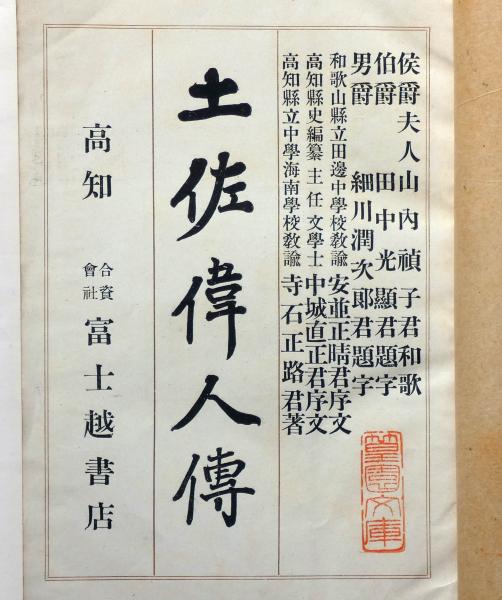 侯爵夫人山内禎子君和歌
伯爵 田中光顯君題字
男爵 細川潤次郎君題字
和歌山縣立田邊中學校敎諭 安並正晴君序文
高知縣史編纂主任文學士 中城直正君序文
高知縣立中學海南學校敎諭 寺石正路君著
土佐偉人傳
高知 合資會社 富士越書店